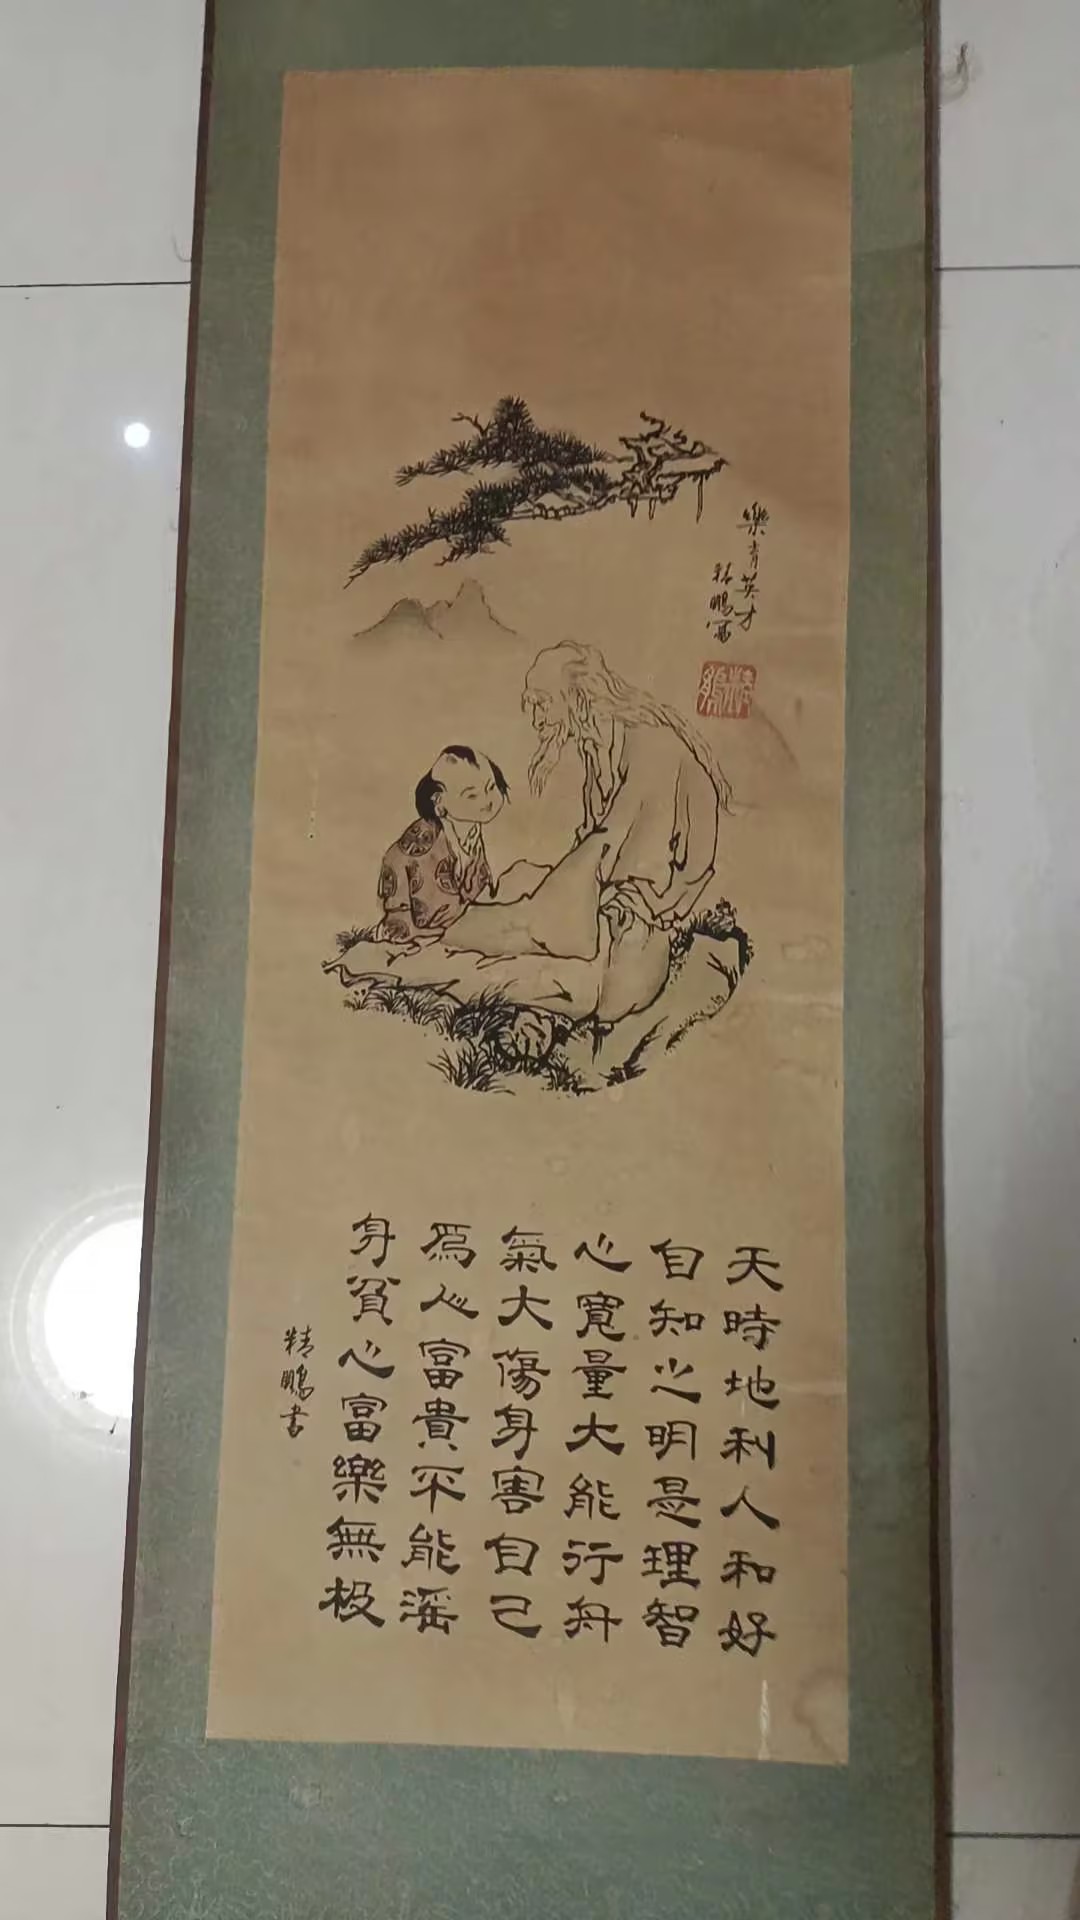 樂育英才
精鵬寫
天時地利人和好
自知之明是理智
心寬量大能行舟
氣大傷身害自己
為人富貴不能滛
身貧心富樂無极
精鵬書